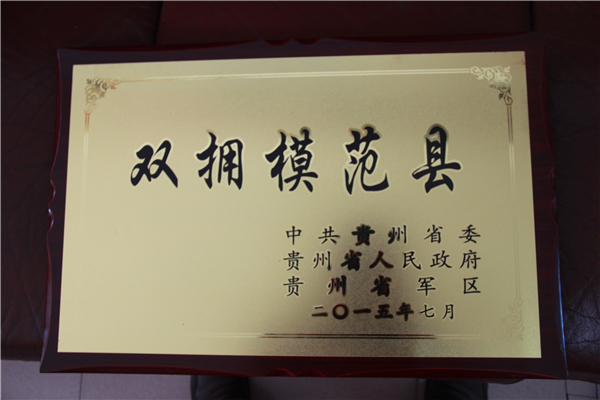 双拥模范县
中共贵州省委
贵州省人民政府
贵州省军区
二〇一五年七月